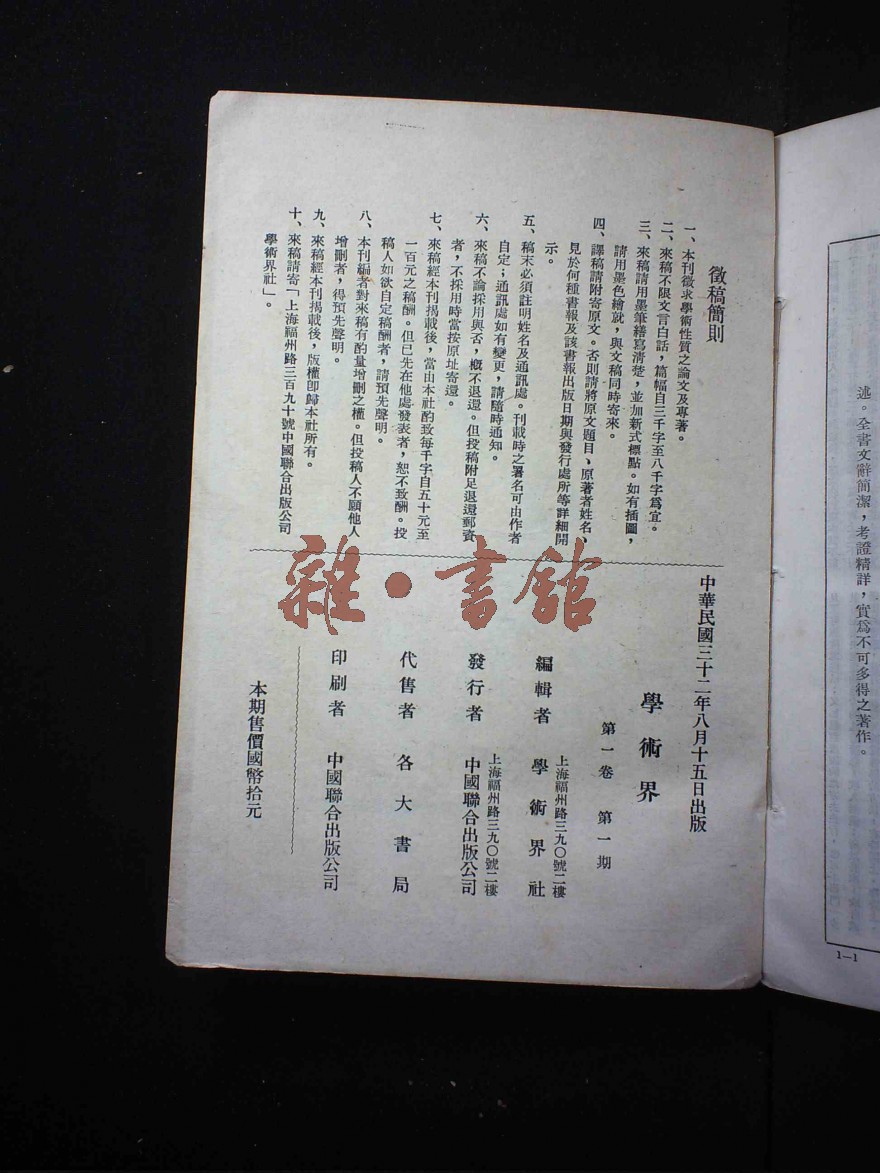 徵稿簡則
一、本刊徵求學術性質之論文及專著。
二、來稿不限文言白話，篇幅自三千字至八千字爲宜。
三、來稿請用墨筆繕寫清楚，並加新式標點。如有插圖，
請用墨色繪就，與文稿同時寄來。
四、譯稿請附寄原文。否則請將原文題目、原著者姓名、
見於何種書報及該書報出版日期與發行處所等詳細開
示。
五、稿末必須註明姓名及通訊處。刊載時之署名可由作者
自定；通訊處如有變更，請隨時通知。
六、來稿不論採用與否，概不退還。但投稿附足退還郵資
者，不採用時當按原址寄還。
七、來稿經本刊揭載後，當由本社酌致每千字自五十元至
一百元之稿酬。但已先在他處發表者，恕不致酬。投
稿人如欲自定稿酬者，請預先聲明。
八、本刊編者對來稿有酌量增刪之權。但投稿人不願他人
增刪者，得預先聲明。
九、來稿經本刊揭載後，版權卽歸本社所有。
十、來稿請寄「上海福州路三百九十號中國聯合出版公司
學術界社」。
中華民國三十二年八月十五日出版
學術界
第一卷 第一期
上海福州路三九〇號二樓
編輯者 學術界社
上海福州路三九〇號二樓
發行者 中國聯合出版公司
代售者 各大書局
印刷者 中國聯合出版公司
本期售價國幣拾元
雜·書館
述。全書文辭簡潔，考證精詳，實爲不可多得之著作。
1—1